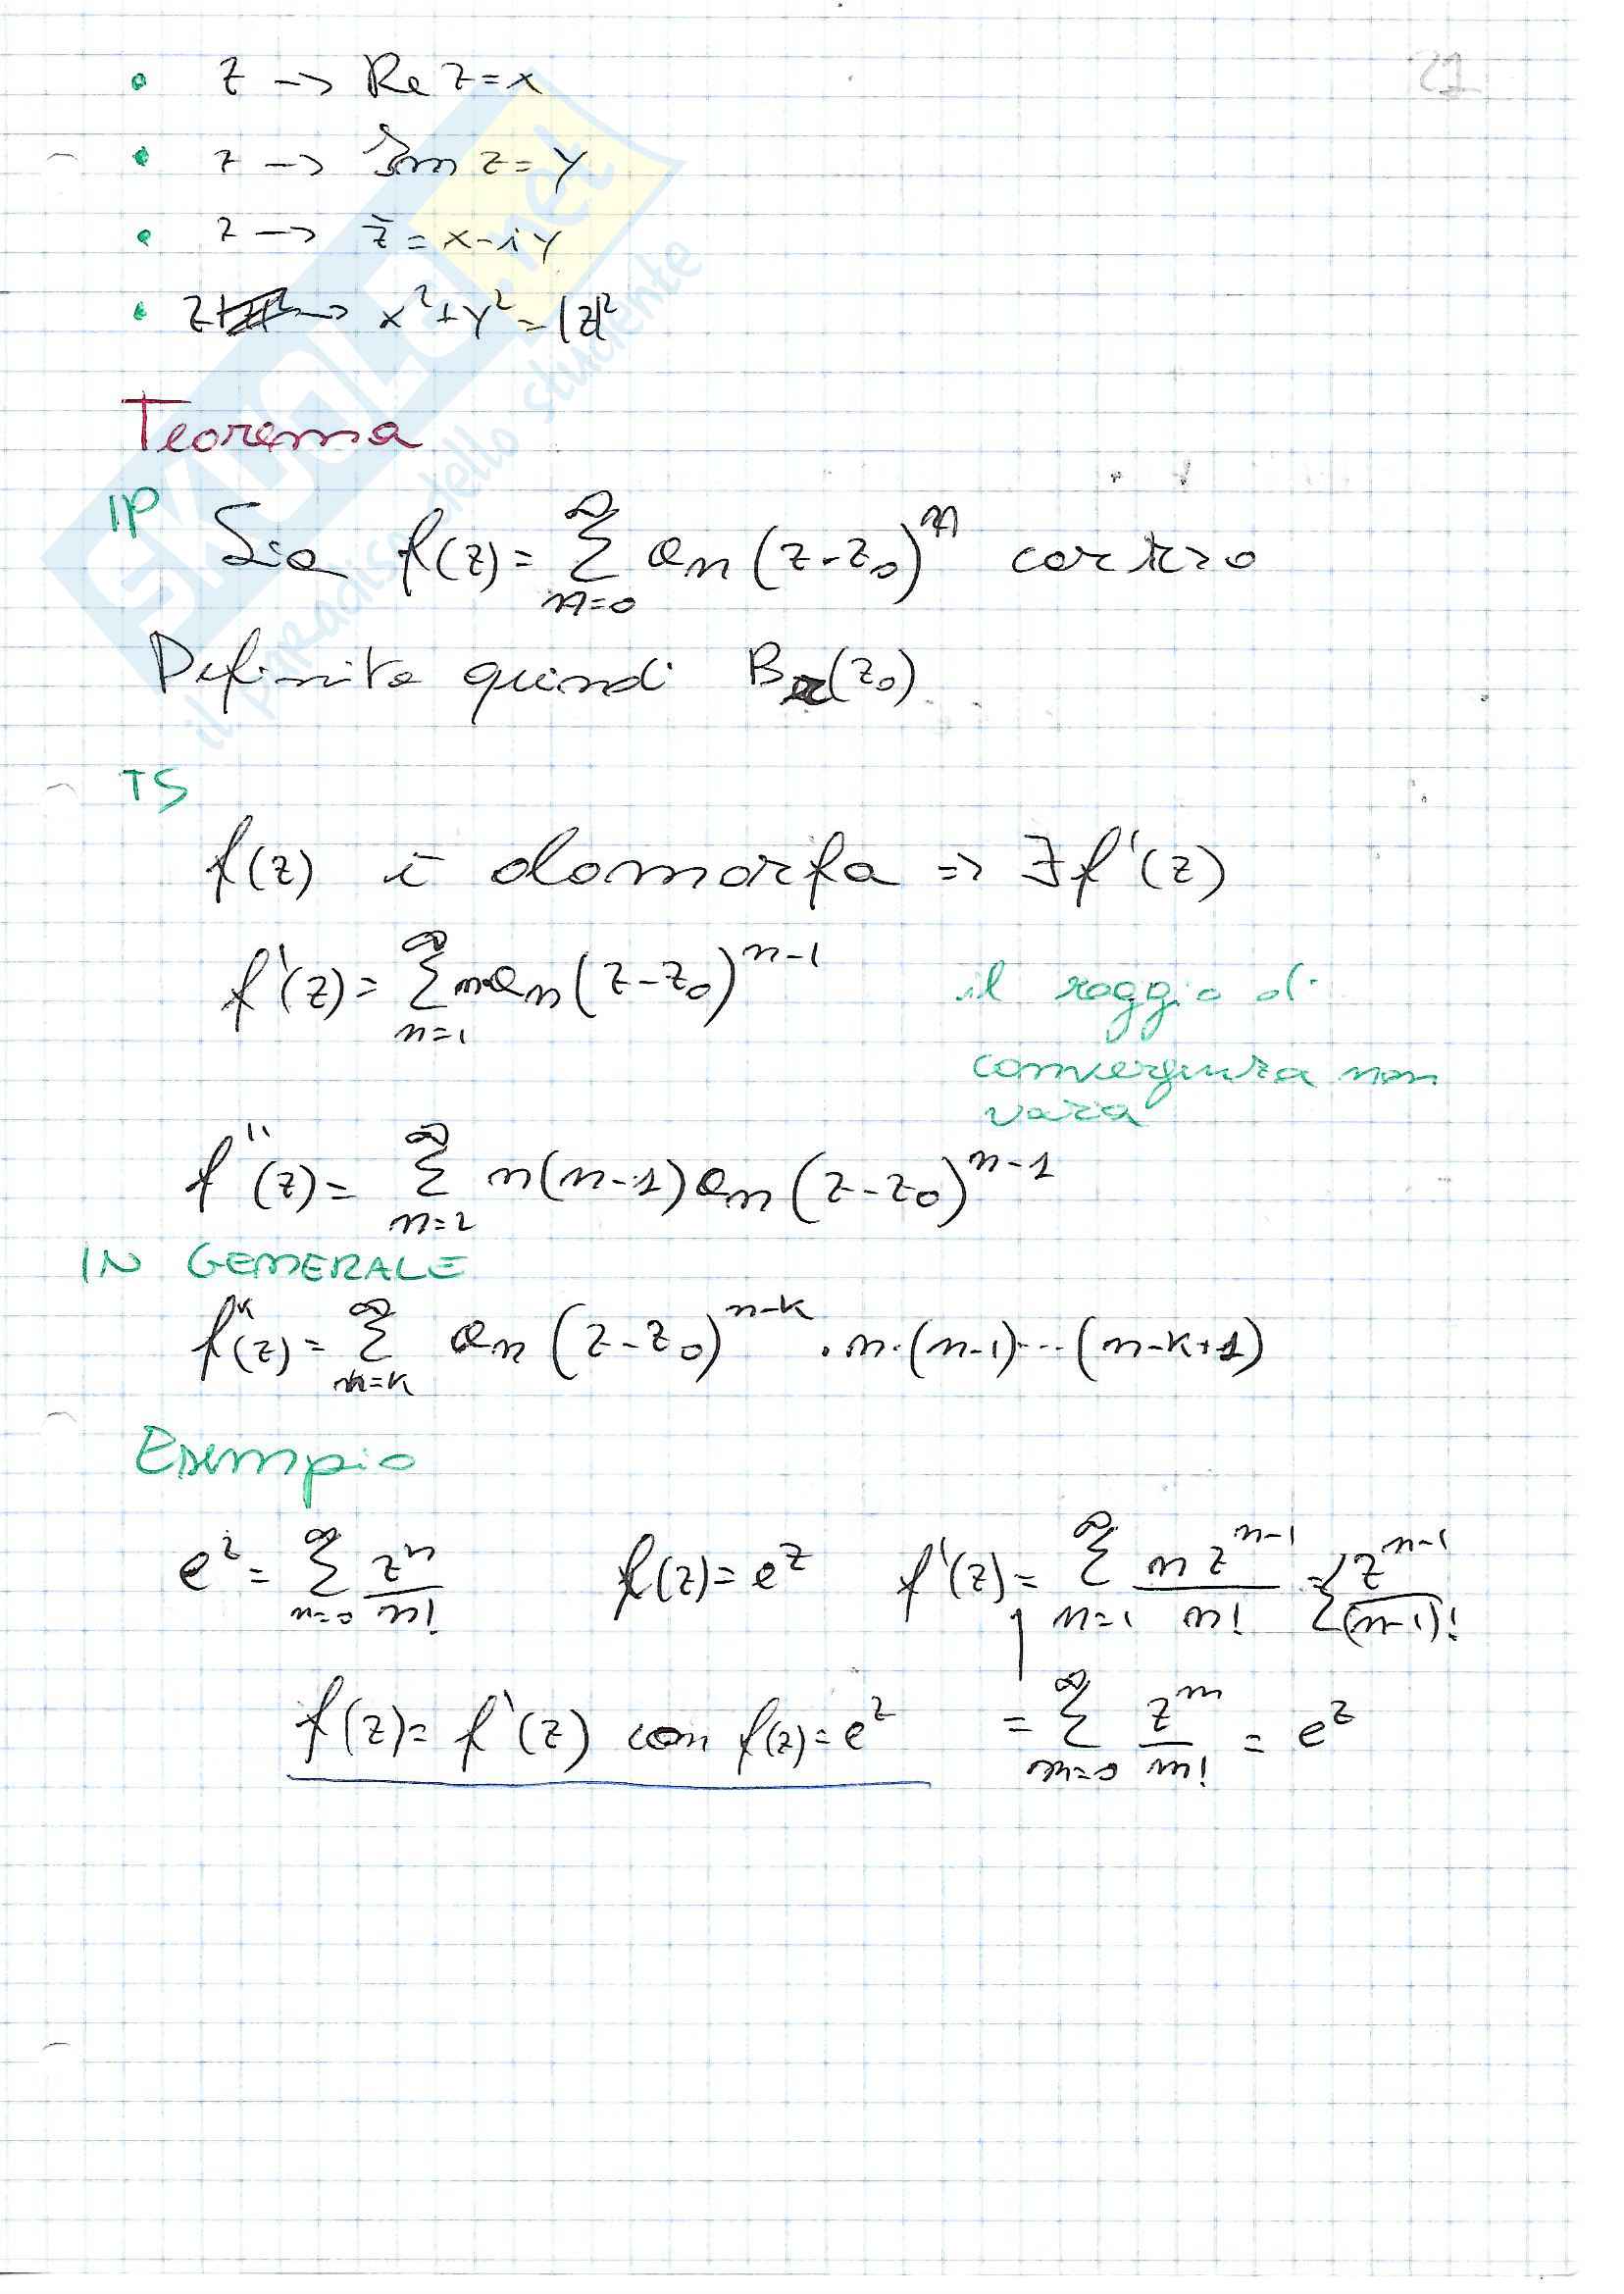 27
• z → Re z = x
• z → Im z = y
• z → z̄ = x - iy
• z → x² + y² = |z|²
Teorema
IP Sia f(z) = ∑_{n=0}^{∞} a_n (z-z_0)^n con r>0
Definita quindi B_r(z_0)
TS
f(z) è olomorfa => ∃ f'(z)
f'(z) = ∑_{n=1}^{∞} n a_n (z-z_0)^{n-1} il raggio di
convergenza non
varia
f''(z) = ∑_{n=2}^{∞} n(n-1) a_n (z-z_0)^{n-1}
IN GENERALE
f^k(z) = ∑_{n=k}^{∞} a_n (z-z_0)^{n-k} · n·(n-1)···(n-k+1)
Esempio
e^z = ∑_{n=0}^{∞} z^n/n! f(z) = e^z f'(z) = ∑_{n=1}^{∞} n z^{n-1}/n! = ∑ z^{n-1}/(n-1)!
f(z) = f'(z) con f(z) = e^z = ∑_{m=0}^{∞} z^m/m! = e^z
SKUOLA.net
il paradiso dello studente